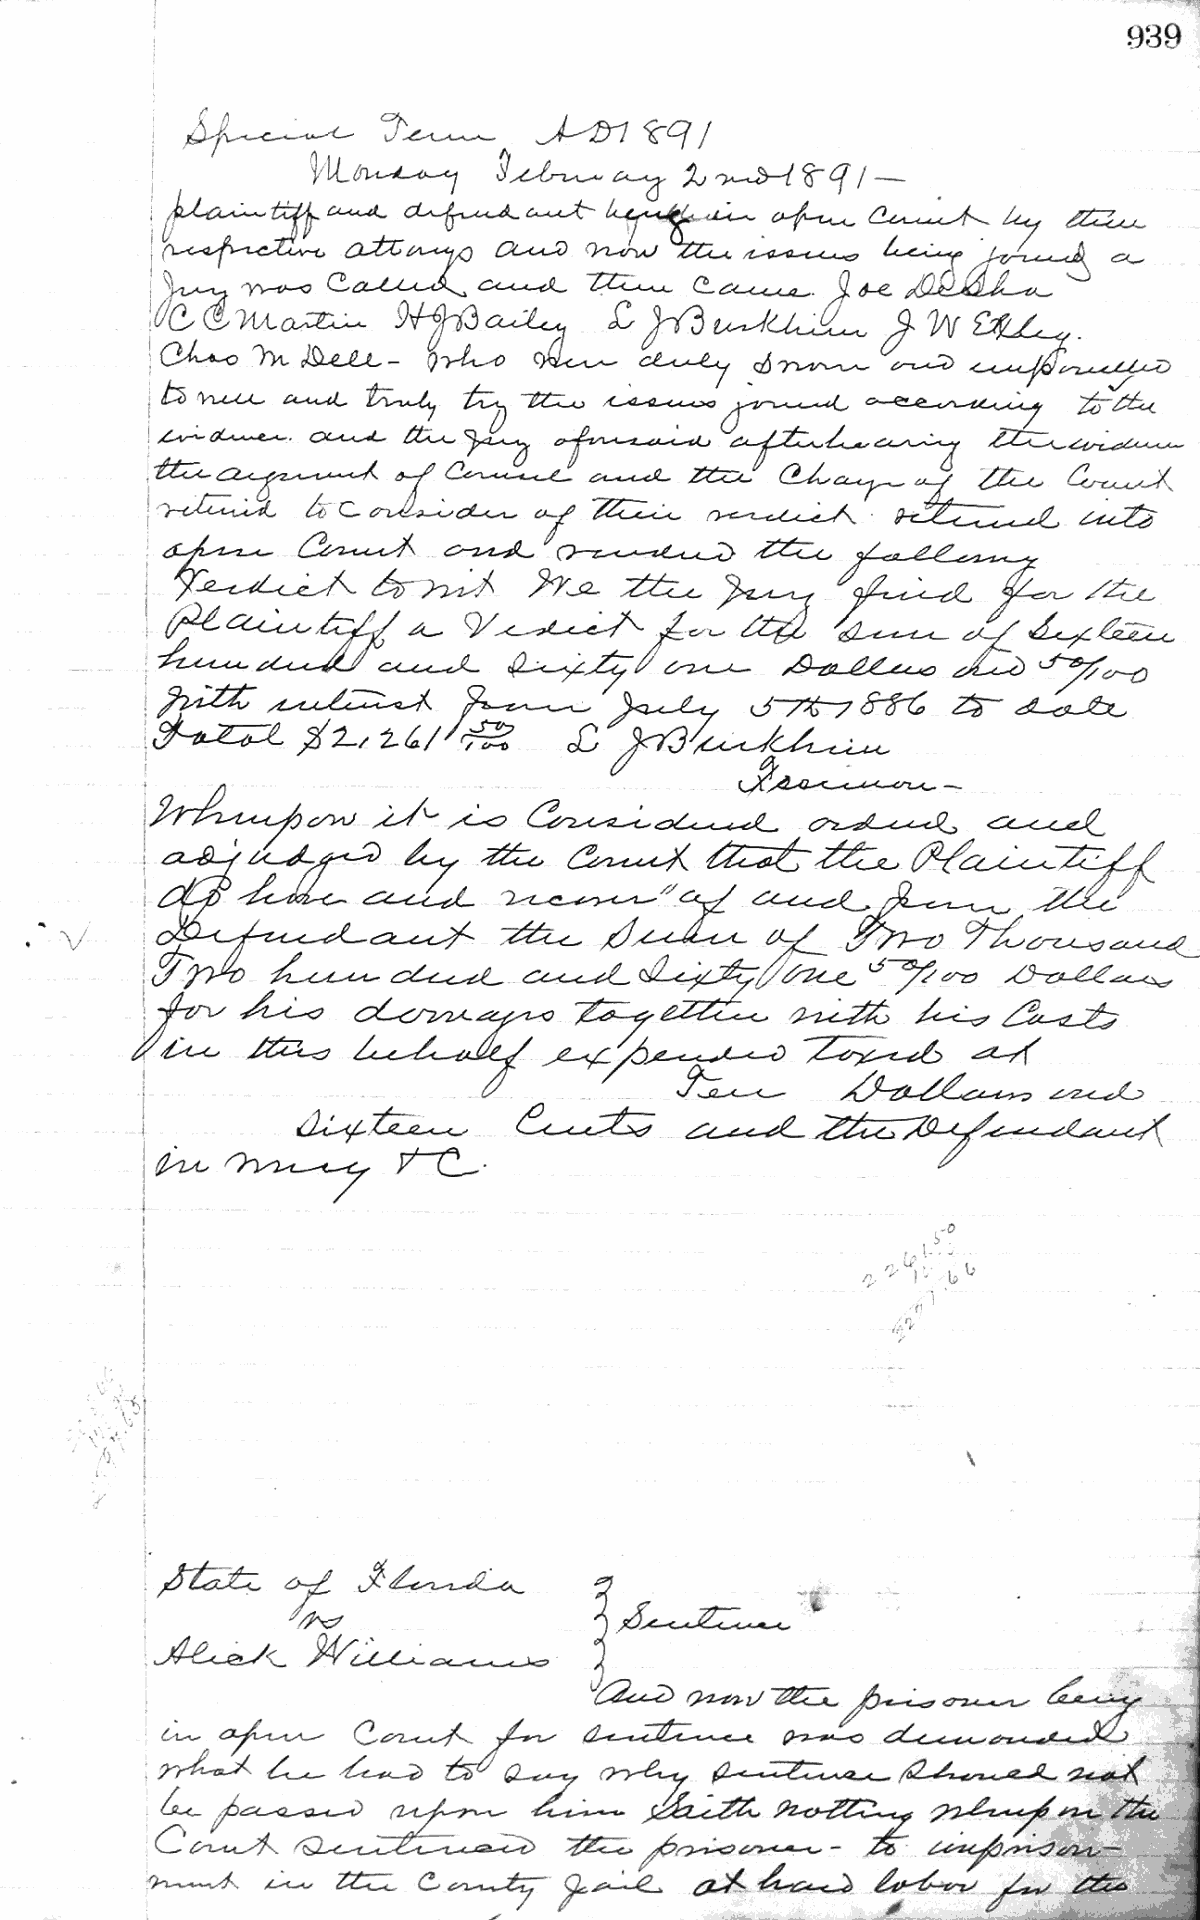 939
Special Term AD 1891
Monday February 2nd 1891 —
plaintiff and defendant being in open Court by their
respective attorneys and now the issues being joined a
Jury was Called and there came Joe DeSha
C C Martin H J Bailey L J Burkhim J W
Chas M Dell - who were duly sworn and impanelled
to well and truly try the issues joined according to the
evidence. and the Jury aforesaid after hearing the evidence
the argument of Counsel and the Charge of the Court
retired to Consider of their verdict returned into
open Court and rendered the following
Verdict to wit We the Jury find for the
Plaintiff a Verdict for the sum of Sixteen
hundred and Sixty one Dollars and 50/100
with interest from July 5th 1886 to date
Total $2,261 50/100 L J Burkhim
Foreman -
Whereupon it is Considered ordered and
adjudged by the Court that the Plaintiff
do have and recover of and from the
Defendant the Sum of Two Thousand
Two hundred and Sixty One 50/100 Dollars
for his damages together with his Costs
in this behalf expended Taxed at
Ten Dollars and
Sixteen Cents and the Defendant
in mercy & C.
2261.50
State of Florida
vs
Alick Williams
Sentence
And now the prisoner being
in open Court for sentence was demanded
what he had to say why sentence should not
be passed upon him Saith nothing whereupon the
Court sentenced the prisoner - to imprison-
ment in the County Jail at hard labor for the